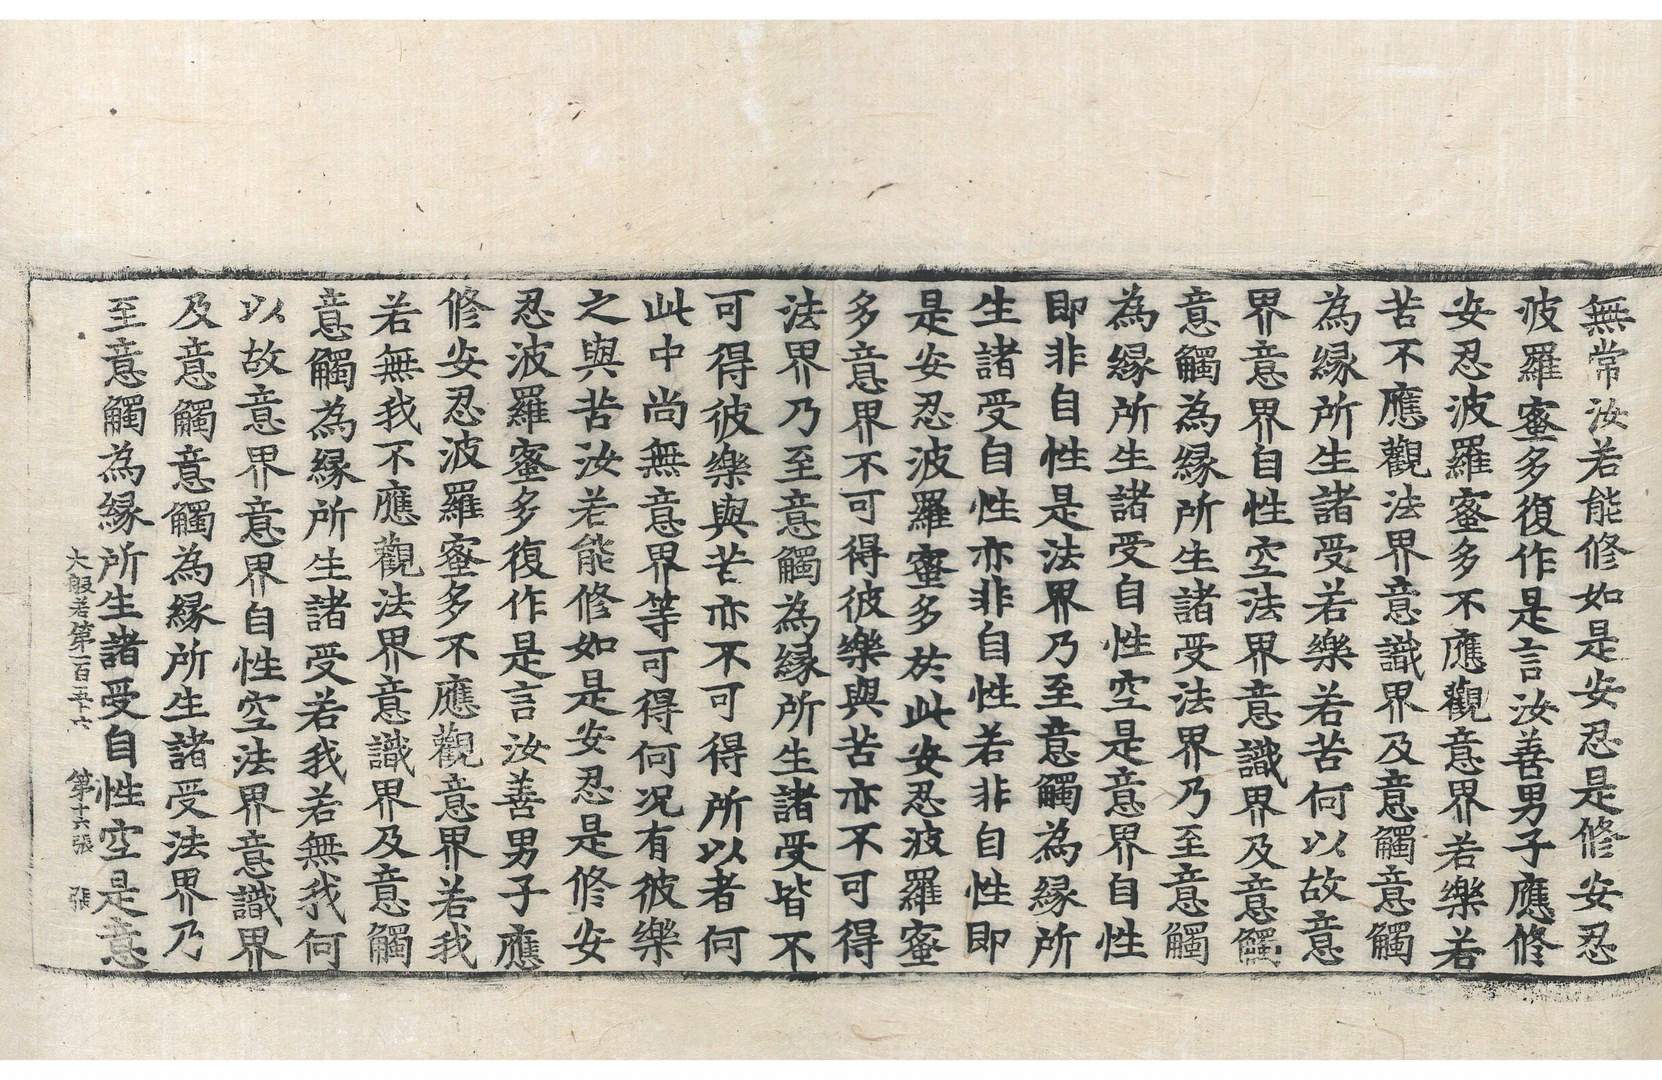 無常汝若能修如是安忍是修安忍
波羅蜜多復作是言汝善男子應修
安忍波羅蜜多不應觀意界若樂若
苦不應觀法界意識界及意觸意觸
為縁所生諸受若樂若苦何以故意
界意界自性空法界意識界及意觸
意觸為縁所生諸受法界乃至意觸
為縁所生諸受自性空是意界自性
即非自性是法界乃至意觸為縁所
生諸受自性亦非自性若非自性即
是安忍波羅蜜多於此安忍波羅蜜
多意界不可得彼樂與苦亦不可得
法界乃至意觸為縁所生諸受皆不
可得彼樂與苦亦不可得所以者何
此中尚無意界等可得何况有彼樂
之與苦汝若能修如是安忍是修安
忍波羅蜜多復作是言汝善男子應
修安忍波羅蜜多不應觀意界若我
若無我不應觀法界意識界及意觸
意觸為縁所生諸受若我若無我何
以故意界意界自性空法界意識界
及意觸意觸為縁所生諸受法界乃
至意觸為縁所生諸受自性空是意
大般若第一百五十六 第十六張 張